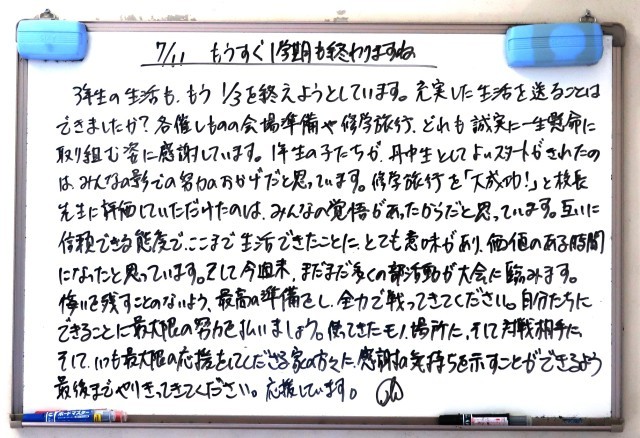 7/11 もうすぐ1学期も終わりますね
3年生の生活も、もう1/3を終えようとしています。充実した生活を送ることは
できましたか？各催しものの会場準備や修学旅行、どれも誠実に一生懸命に
取り組む姿に感謝しています。1年生の子たちが、丹中生としてよいスタートがきれたの
は、みんなの影での努力のおかげだと思っています。修学旅行を「大成功！」と校長
先生に評価していただけたのは、みんなの覚悟があったからだと思っています。互いに
信頼できる態度で、ここまで生活できたことに、とても意味があり、価値のある時間
になったと思っています。そして今週末、まだまだ多くの部活動が大会に臨みます。
悔いを残すことのないよう、最高の準備をし、全力で戦ってきてください。自分たちに
できることに最大限の努力を払いましょう。使ってきたモノ、場所に、そして対戦相手に、
そして、いつも最大限の応援をしてくださる家の方々に、感謝の気持ちを示すことができるよう
最後までやりきってきてください。応援しています。
ボードマスター